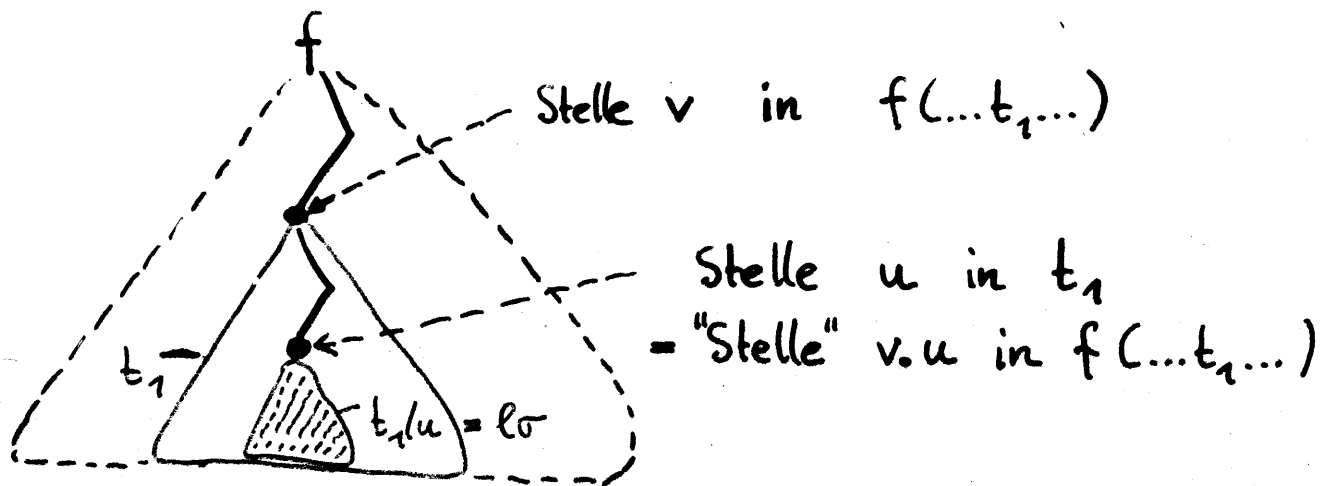 f
Stelle v in f(...t₁...)
Stelle u in t₁
= "Stelle" v.u in f(...t₁...)
t₁
t₁/u = lσ